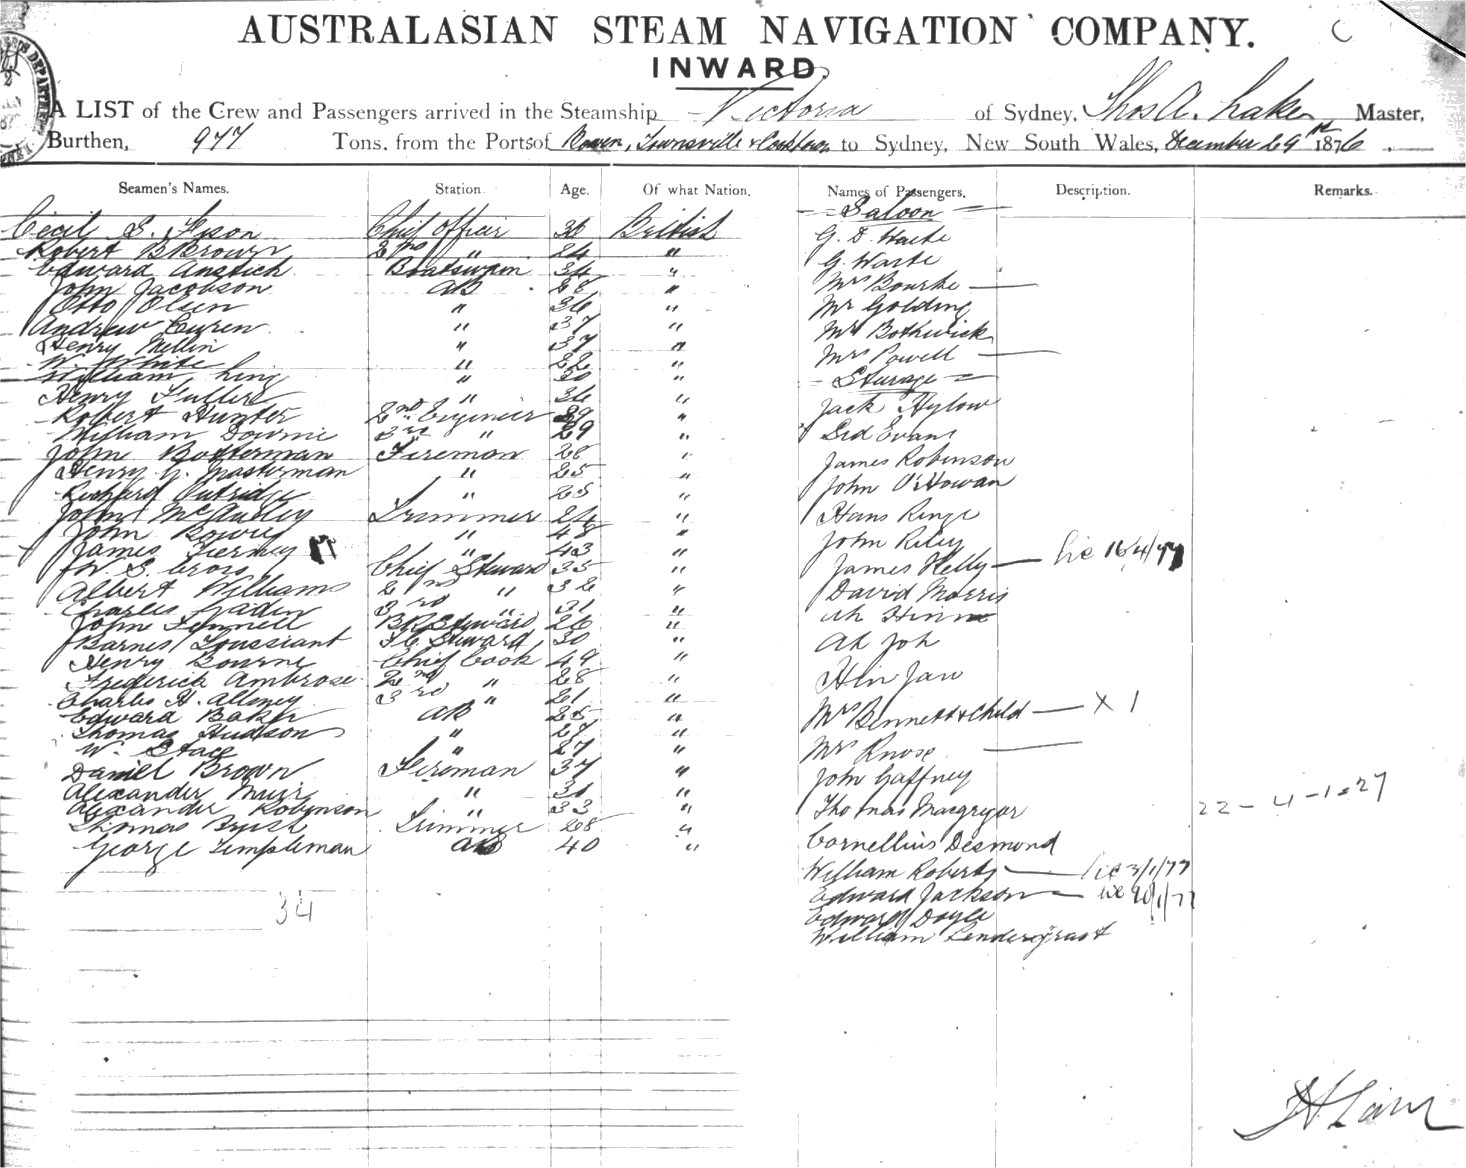 AUSTRALASIAN STEAM NAVIGATION COMPANY. C
INWARD.
A LIST of the Crew and Passengers arrived in the Steamship Victoria of Sydney, Thos A. Lake Master,
Burthen, 977 Tons, from the Ports of Bowen, Townsville & Cooktown to Sydney, New South Wales, December 29th 1876
Seamen's Names. Station. Age. Of what Nation. Names of Passengers. Description. Remarks.
Saloon
Cecil S. Fison Chief Officer 30 British
Robert B Brown 2nd " 24 "
Edward Anstich Boatswain 34 "
John Jacobson AB 28 "
Otto Olsen " 36 "
Andrew Curen " 37 "
Henry Mellin " 37 "
W. White " 22 "
William King " 30 "
Henry Fullers " 36 "
Robert Hunter 2nd Engineer 39 "
William Downie 3rd " 29 "
John Botterman Fireman 28 "
Henry G. Masterman " 25 "
Richard Outridge " 25 "
John McAuley Trimmer 24 "
John Bowie " 48 "
James Tierney " 43 "
W. S. Cross Chief Steward 35 "
Albert Williams 2nd " 32 "
Charles Gaden 3rd " 31 "
John Fennell BR Steward 26 "
Barnes Toussiant F.C. Steward 30 "
Henry Bourne Chief Cook 49 "
Frederick Ambrose 2nd " 28 "
Charles H. Alloney 3rd " 21 "
Edward Baker AB 25 "
Thomas Hudson " 27 "
W. Stace " 27 "
Daniel Brown Fireman 37 "
Alexander Muir " 30 "
Alexander Robinson " 33 "
Thomas Byrch Trimmer 28 "
George Templeman AB 40 "
34
G. D. Waite
G. Waite
Mrs Bourke
Mr Golding
Mr Bothwick
Mrs Powell
Steerage
Jack Hylow
Sid Evans
James Robinson
John O'Howan
Hans Ringe
John Riley
James Kelly — lic 16/4/77
David Morris
Ah Hinn
Ah Joh
Hin Jan
Mrs Bennett & Child — X 1
Mrs Knose
John Gaffney
Thomas Macgrygor 22-4-1-27
Cornellius Desmond
William Roberts — lic 3/1/77
Edward Jackson — lic 20/1/77
Edward Doyle
William Lendergrast